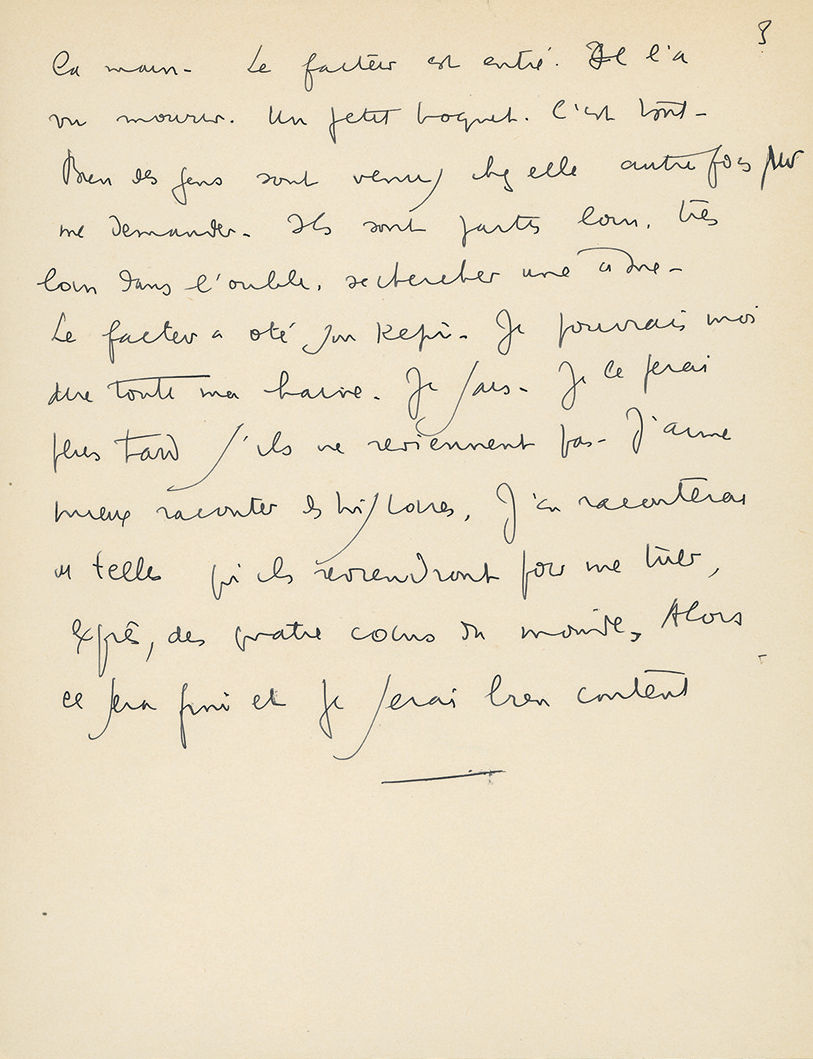 3
la main - Le facteur est entré. Il l'a
vu mourir. Un petit hoquet. C'est tout -
Bien des gens sont venus chez elle autrefois pour
me demander - Ils sont partis loin, très
loin dans l'oubli, se chercher une
Le facteur a oté son kepi - Je pouvrais moi
dire toute ma haine - Je sais - Je le ferai
plus tard s'ils ne reviennent pas - J'aime
mieux raconter les histoires, J'en raconterai
de telles qu'ils reviendront pour me tuer,
exprès, des quatre coins du monde, Alors
ce sera fini et je serai bien content